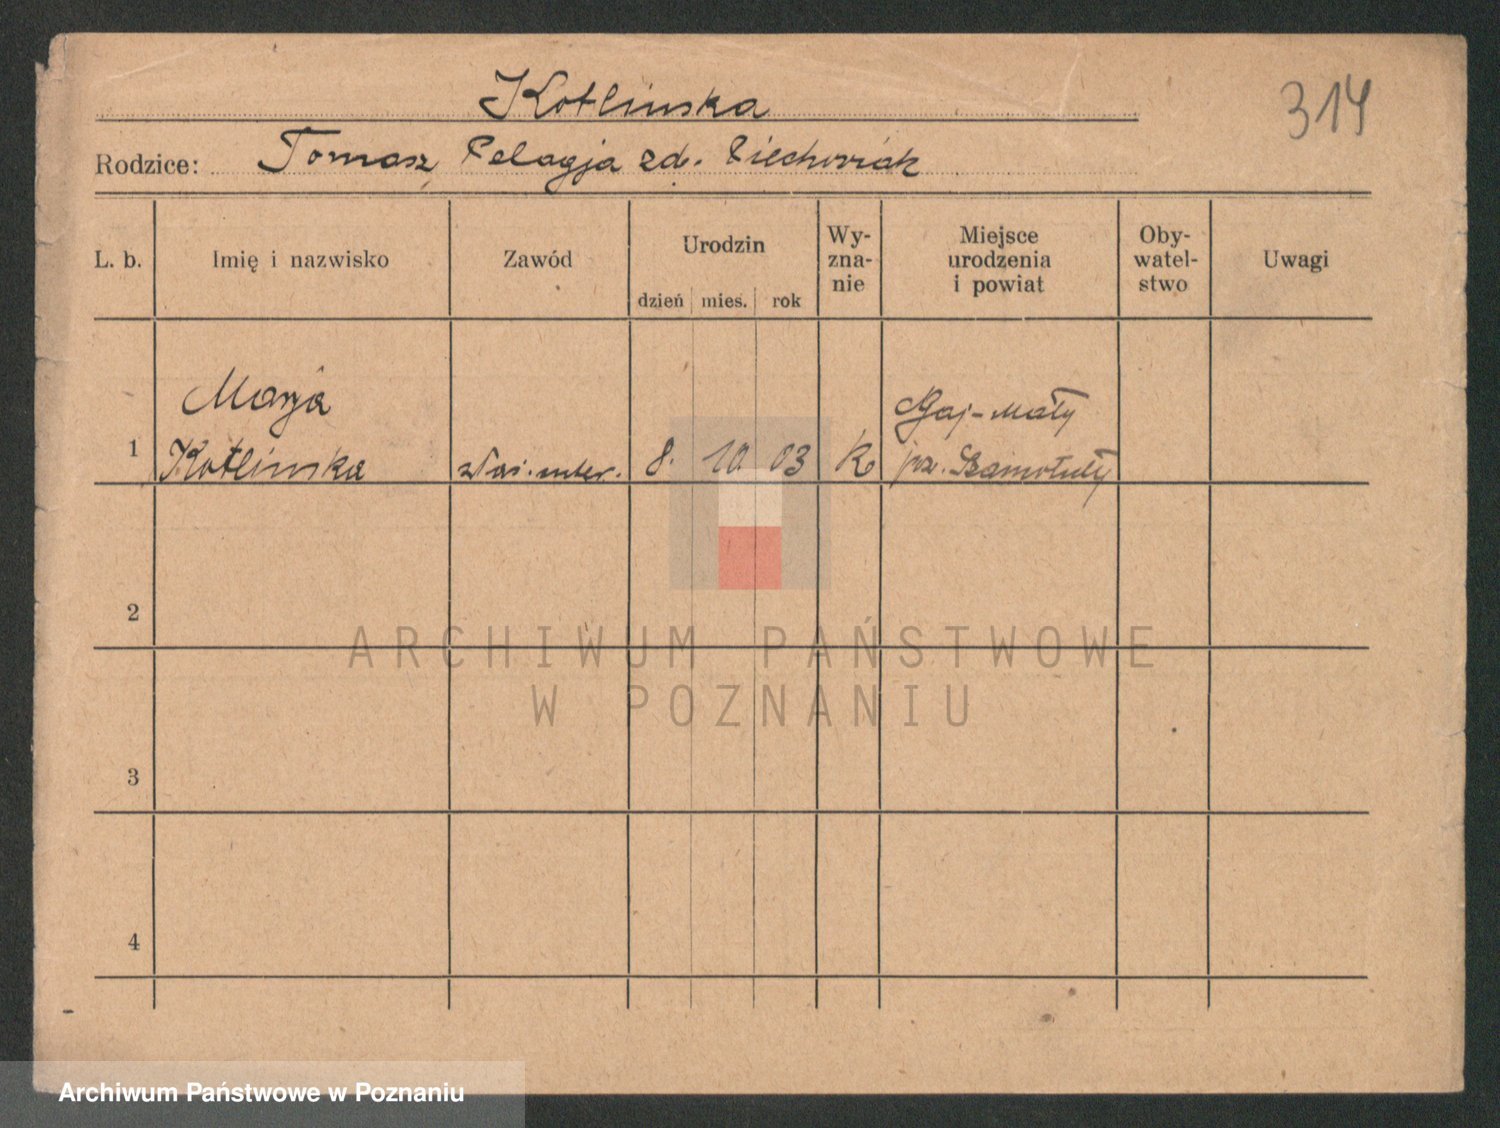 Kotlinska
314
Rodzice: Tomasz, Pelagja zd. Piechowiak
L. b. Imię i nazwisko Zawód Urodzin dzień mies. rok Wy-zna-nie Miejsce urodzenia i powiat Oby-watel-stwo Uwagi
Marja
Gaj-mały
1 Kotlinska 8. 10. 03 Rz pow. Szamotuły
2
3
4
ARCHIWUM PAŃSTWOWE
W POZNANIU
Archiwum Państwowe w Poznaniu